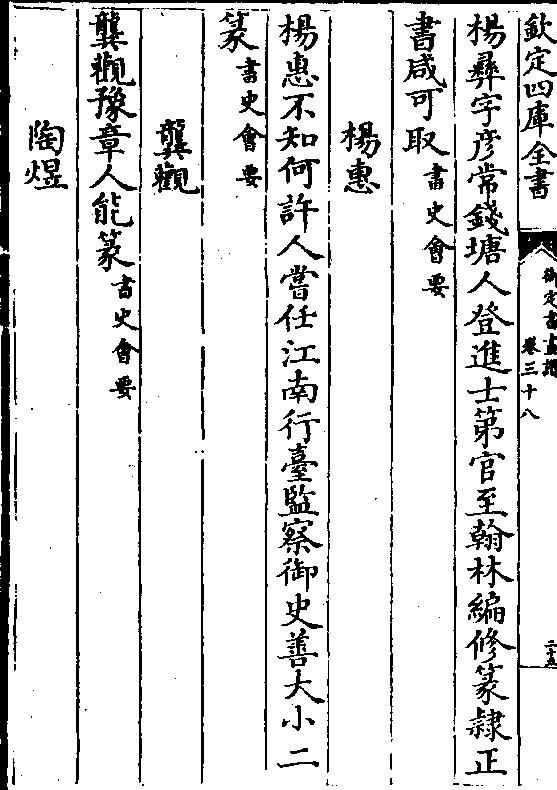 欽定四庫全書
御定書畫譜
卷三十八
二十五
楊彞字彦常錢塘人登進士第官至翰林編修篆隷正
書咸可取書史會要
楊惠
楊惠不知何許人嘗任江南行臺監察御史善大小二
篆書史會要
龔觀
龔觀豫章人能篆書史會要
陶煜